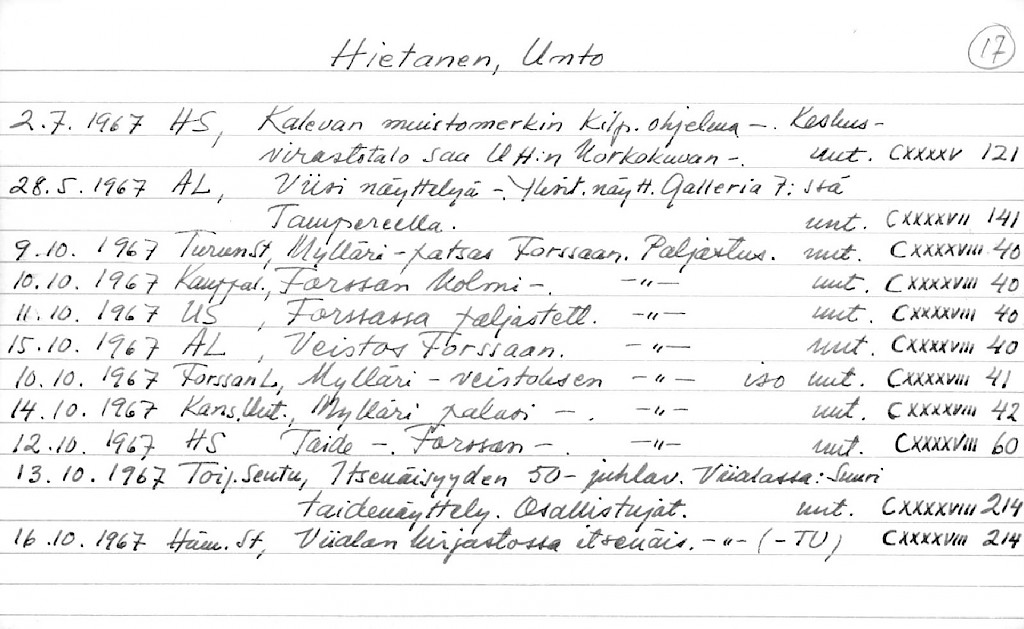 Hietanen, Unto 17
2.7. 1967 HS, Kalevan muistomerkin kilp. ohjelma -. Keskus-
virastotalo saa UH:n korkokuvan -. uut. CXXXXV 121
28.5. 1967 AL, Viisi näyttelyä - Yksit. näytt. Galleria 7:ssä
Tampereella. uut. CXXXXVII 141
9.10. 1967 TurunSt, Mylläri - patsas Forssaan. Paljastus. uut. CXXXXVIII 40
10.10. 1967 Kauppal., Forssan Kolmi -. -"- uut. CXXXXVIII 40
11.10. 1967 US, Forssassa paljastett. -"- uut. CXXXXVIII 40
15.10. 1967 AL, Veistos Forssaan. -"- uut. CXXXXVIII 40
10.10. 1967 ForssanL, Mylläri - veistoksen -"- iso uut. CXXXXVIII 41
14.10. 1967 Kans.Uut., Mylläri palasi -. -"- uut. CXXXXVIII 42
12.10. 1967 HS Taide -. Forssan -. -"- uut. CXXXXVIII 60
13.10. 1967 Toij.Seutu, Itsenäisyyden 50-juhlav. Viialassa: Suuri
taidenäyttely. Osallistujat. uut. CXXXXVIII 214
16.10. 1967 Häm. St, Viialan kirjastossa itsenäis. -"- (-TU) CXXXXVIII 214